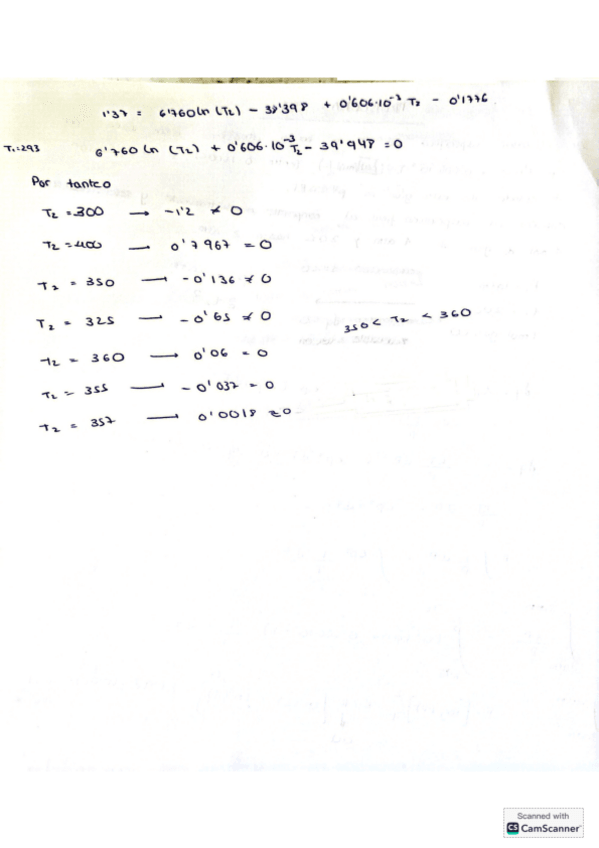 1'37 = 6'760 ln (T₂) - 38'398 + 0'606·10⁻³ T₂ - 0'1776
T₁=293
6'760 ln (T₂) + 0'606·10⁻³ T₂ - 39'948 = 0
Por tanteo
T₂ = 300 → -1'2 ≠ 0
T₂ = 400 — 0'7967 = 0
T₂ = 350 — -0'136 ≠ 0
T₂ = 325 — -0'65 ≠ 0
350 < T₂ < 360
T₂ = 360 → 0'06 = 0
T₂ = 355 — -0'037 = 0
T₂ = 357 — 0'0018 ≈ 0
Scanned with
CS CamScanner